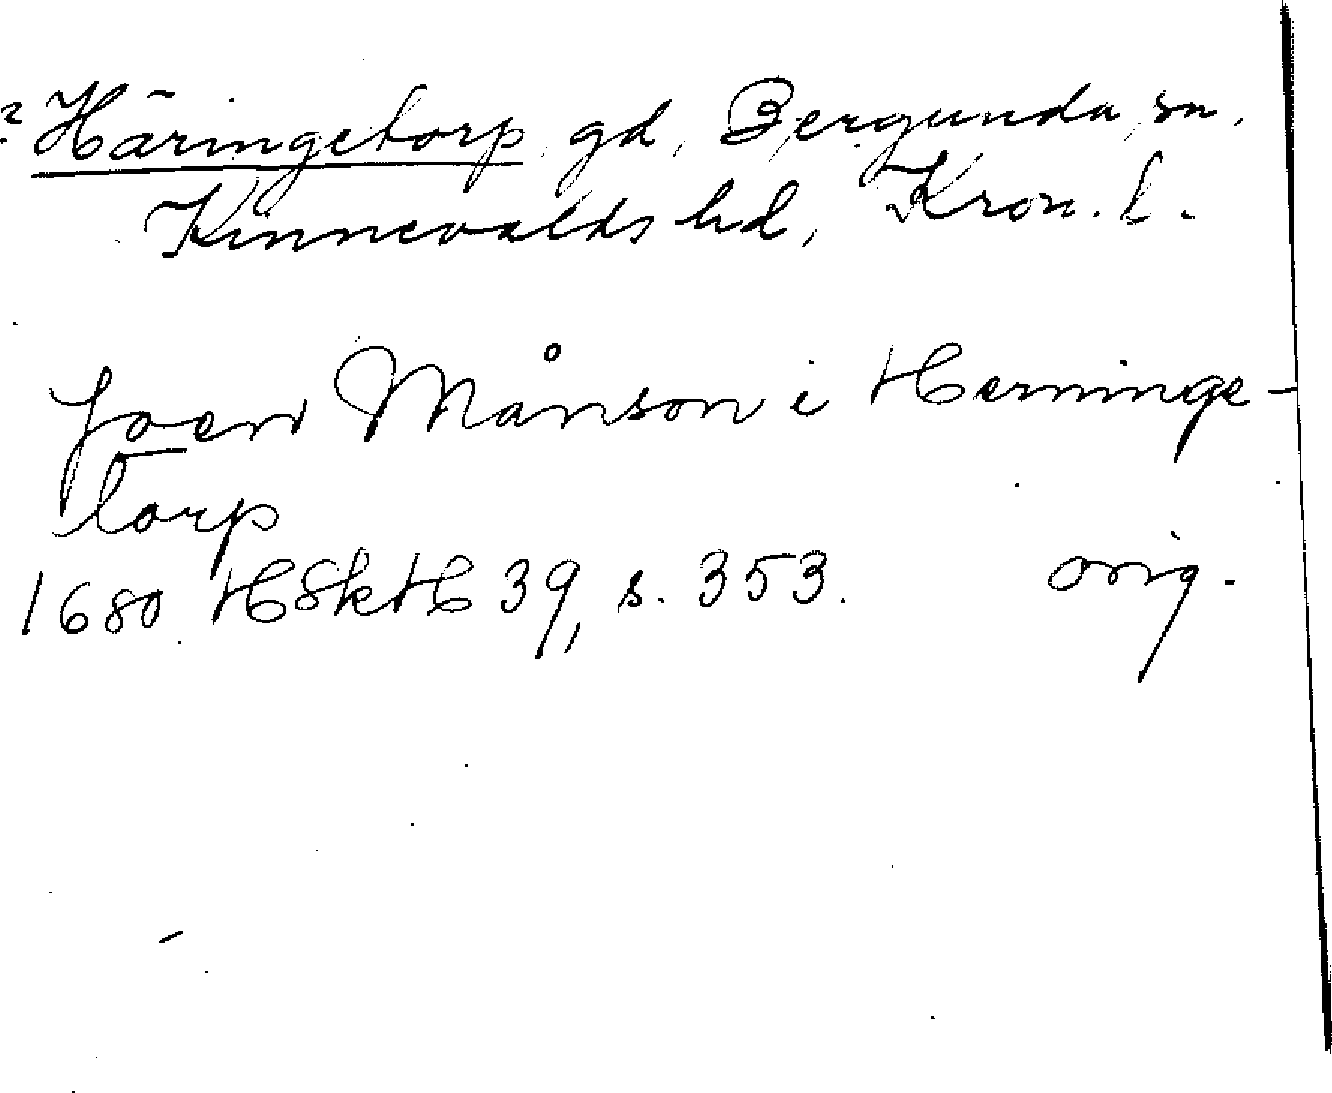 ? Häringetorp, gd, Bergunda sn,
Kinnevalds hd, Kron. l.
Joen Månson i Herninge-
torp
1680 HSkH 39, s. 353. orig.